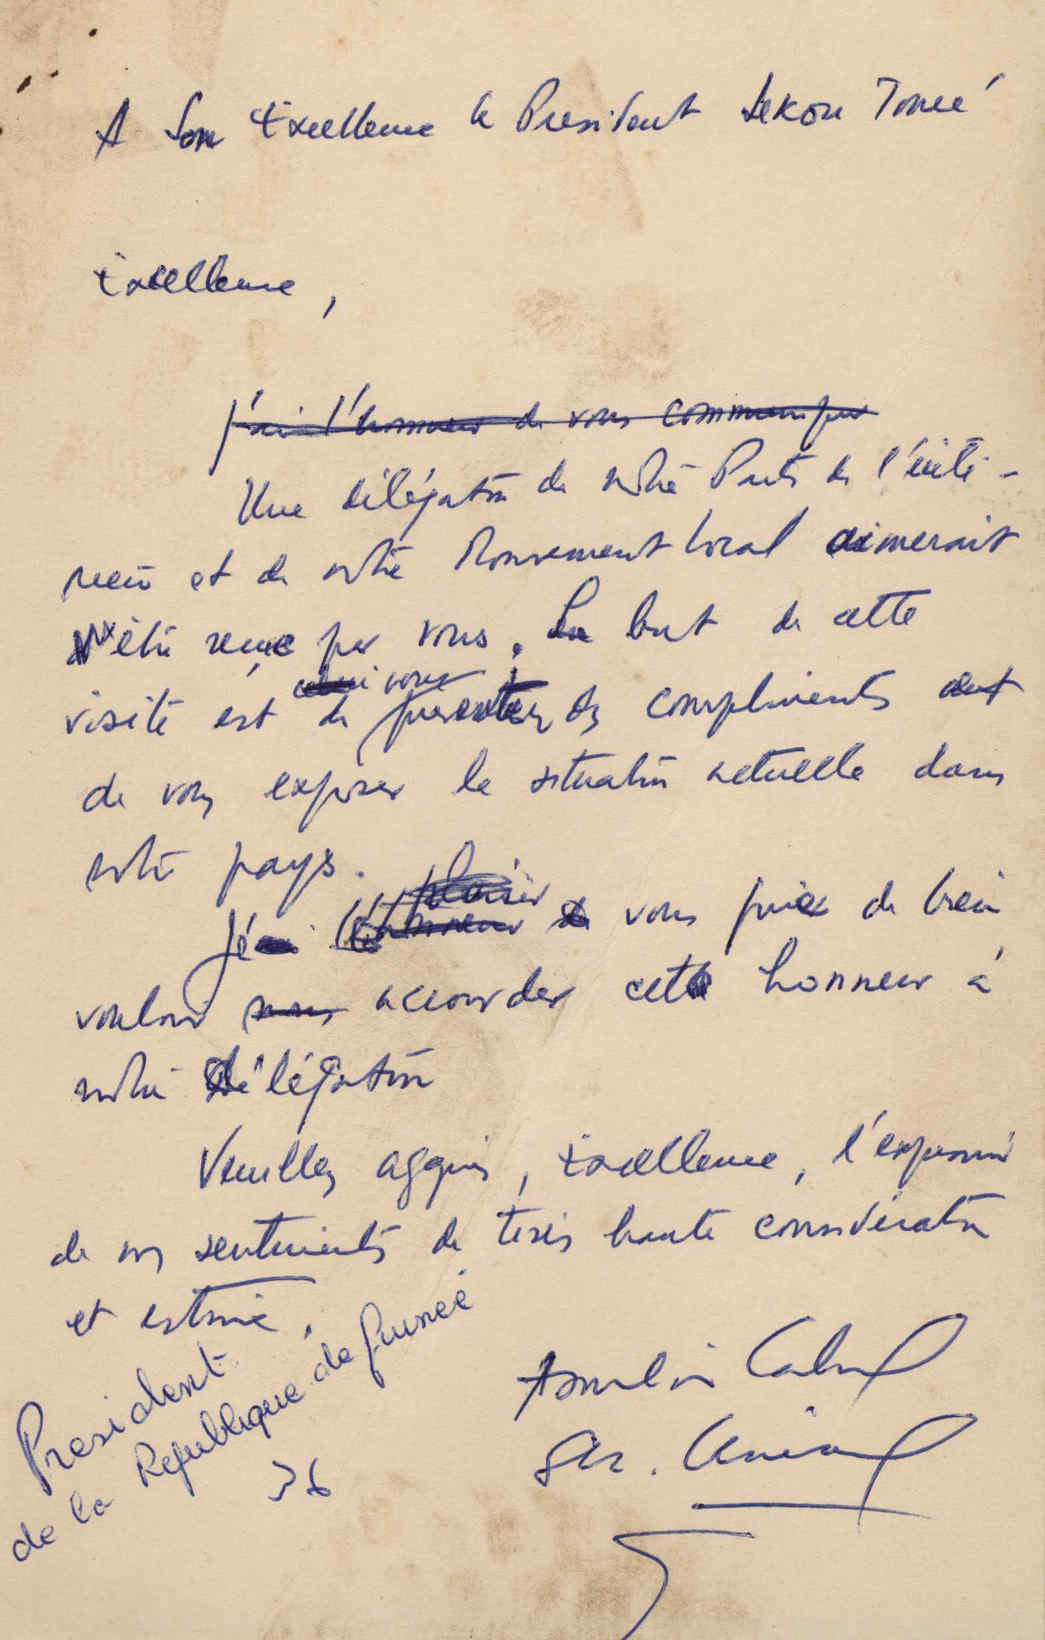 A Son Excellence le President Sekou Toureé
Excellence,
j'ai l'honneur de vous communiquer
Une délégation de notre Parti de l'exté-
rieur et de notre Mouvement local aimerait
être reçue par vous. Le but de cette
vous
visite est de presenter des compliments et
de vous exposer la situation actuelle dans
notre pays.
plaisir
Je l'honneur de vous prier de bien
vouloir nous accourder cet honneur à
notre délégation
Veuillez aggrier, Excellence, l'expression
de nos sentiments de très haute considération
et estime.
President
de la Republique de Guinée
36
Amilcar Cabral
Séc. Général